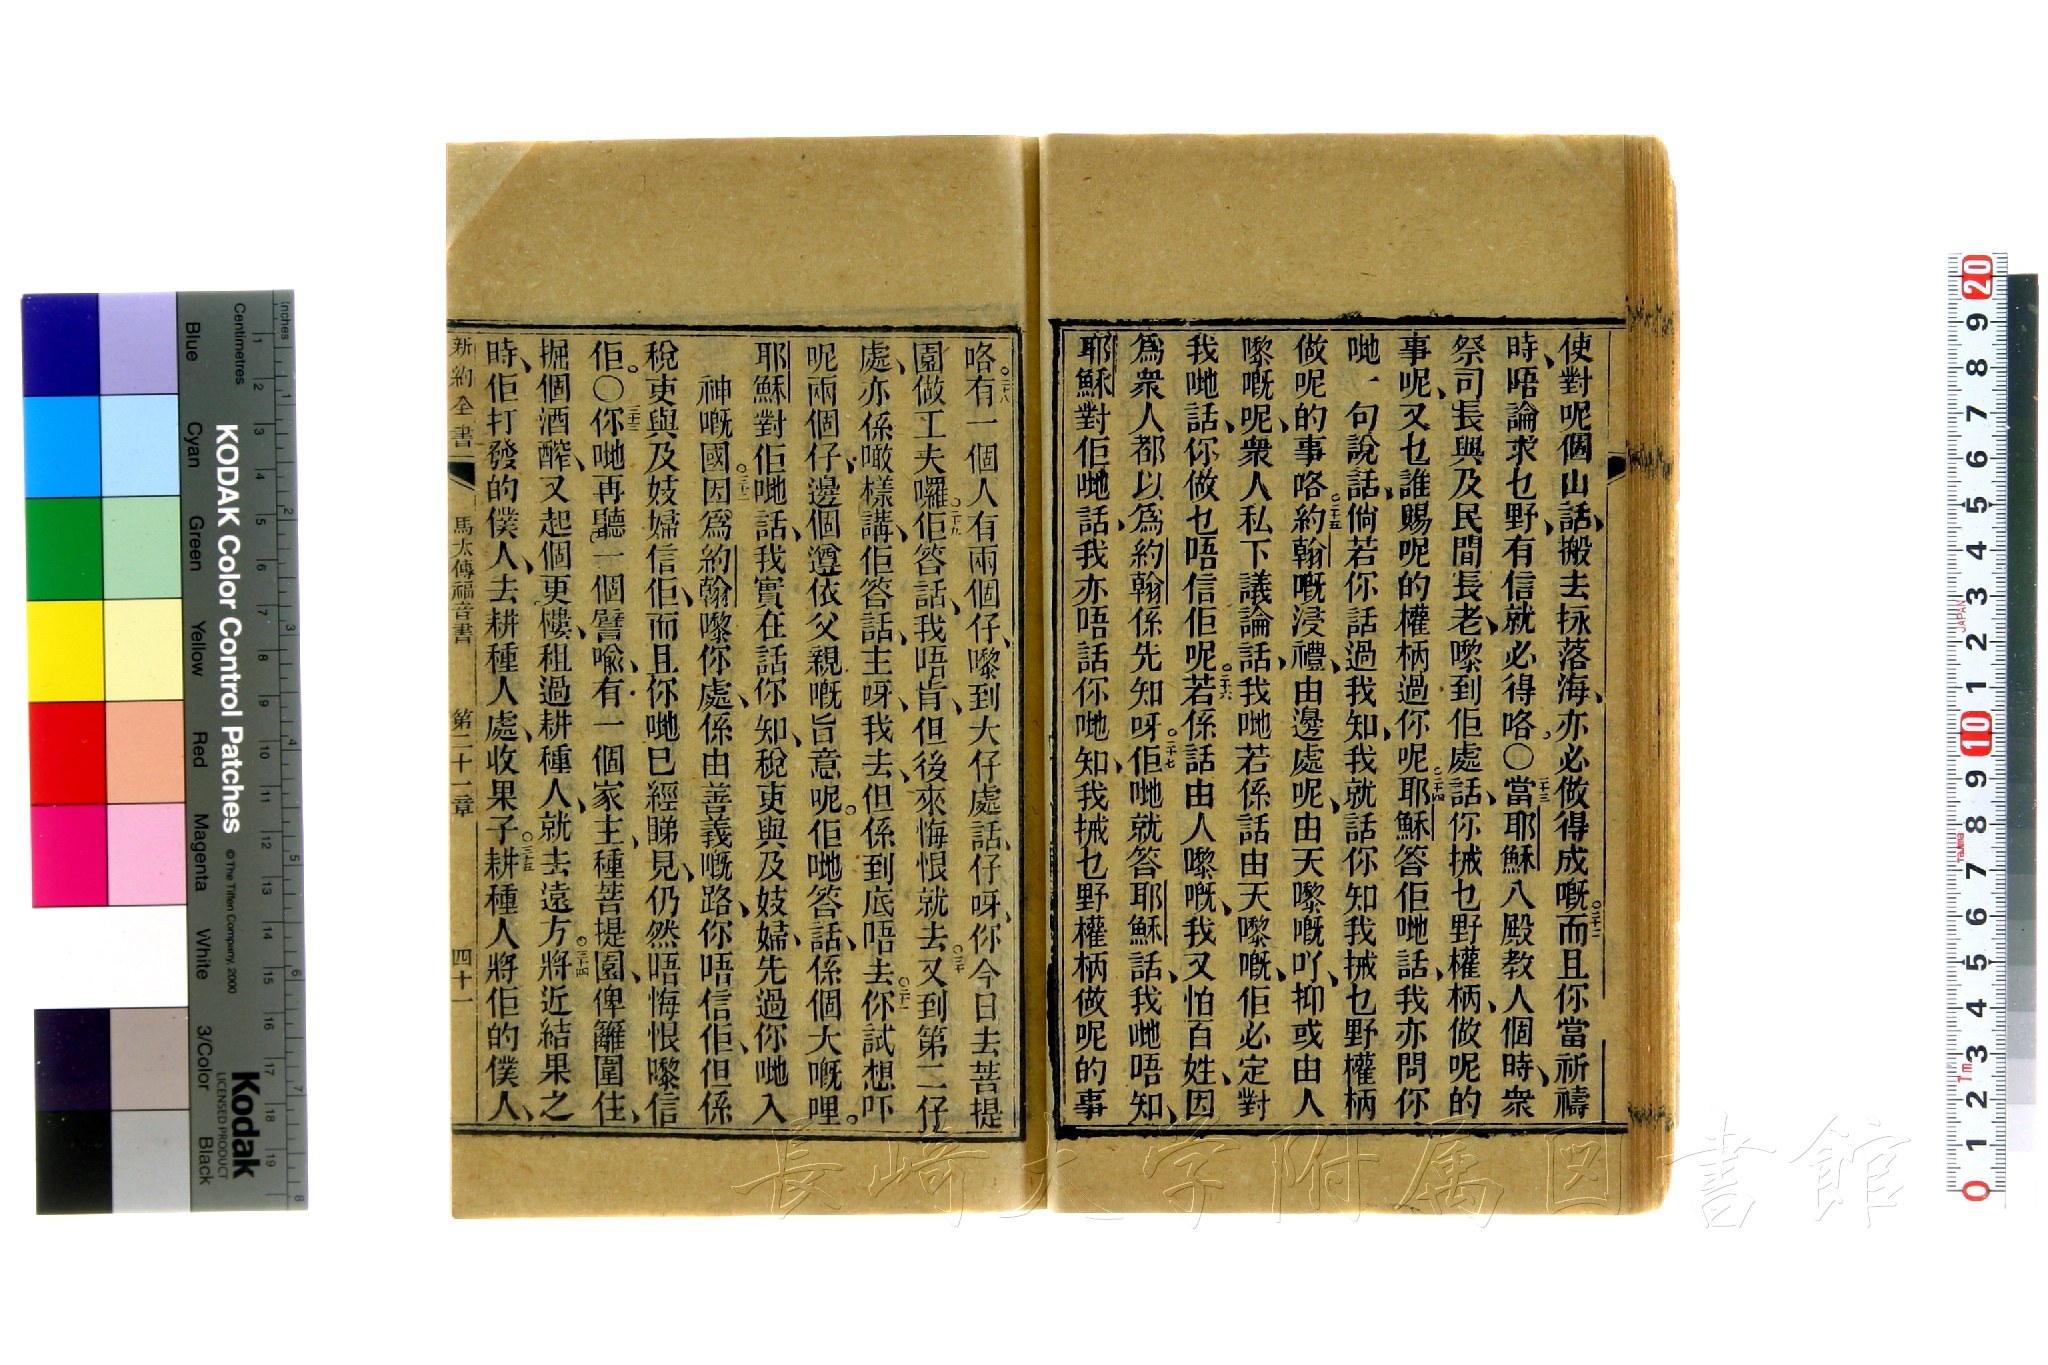 使對呢個山話、搬去㧒落海、亦必做得成嘅。二十二而且你當祈禱
時、唔論求乜野、有信就必得咯。○二十三當耶穌入殿教人個時、衆
祭司長與及民間長老、嚟到佢處話、你㧡乜野權柄、做呢的
事呢、又乜誰賜呢的權柄過你呢。二十四耶穌答佢哋話、我亦問你
哋一句說話、倘若你話過我知、我就話你知我㧡乜野權柄
做呢的事咯。二十五約翰嘅浸禮、由邊處呢、由天嚟嘅吖、抑或由人
嚟嘅呢、衆人私下議論話、我哋若係話由天嚟嘅、佢必定對
我哋話、你做乜唔信佢呢。二十六若係話由人嚟嘅、我又怕百姓、因
爲衆人都以爲約翰係先知呀。二十七佢哋就答耶穌話、我哋唔知、
耶穌對佢哋話、我亦唔話你哋知、我㧡乜野權柄做呢的事
咯。二十八有一個人有兩個仔、嚟到大仔處話、仔呀、你今日去菩提
園做工夫囉。二十九佢答話、我唔肯、但後來悔恨就去。三十又到第二仔
處、亦係噉樣講、佢答話、主呀、我去、但係到底唔去。三十一你試想吓
呢兩個仔、邊個遵依父親嘅旨意呢。佢哋答話、係個大嘅哩。
耶穌對佢哋話、我實在話你知、稅吏與及妓婦、先過你哋入
神嘅國。三十二因爲約翰嚟你處、係由善義嘅路、你唔信佢、但係
稅吏與及妓婦信佢、而且你哋已經睇見、仍然唔悔恨嚟信
佢。○三十三你哋再聽一個譬喻、有一個家主、種菩提園、俾籬圍住、
掘個酒醡、又起個更樓、租過耕種人、就去遠方。三十四將近結果之
時、佢打發的僕人、去耕種人處、收果子。三十五耕種人將佢的僕人、
新約全書 馬太傳福音書 第二十一章 四十一
KODAK Color Control Patches
© The Tiffen Company, 2000
Kodak
LICENSED PRODUCT
Centimetres
Inches
Blue
Cyan
Green
Yellow
Red
Magenta
White
3/Color
Black
長崎大学附属図書館